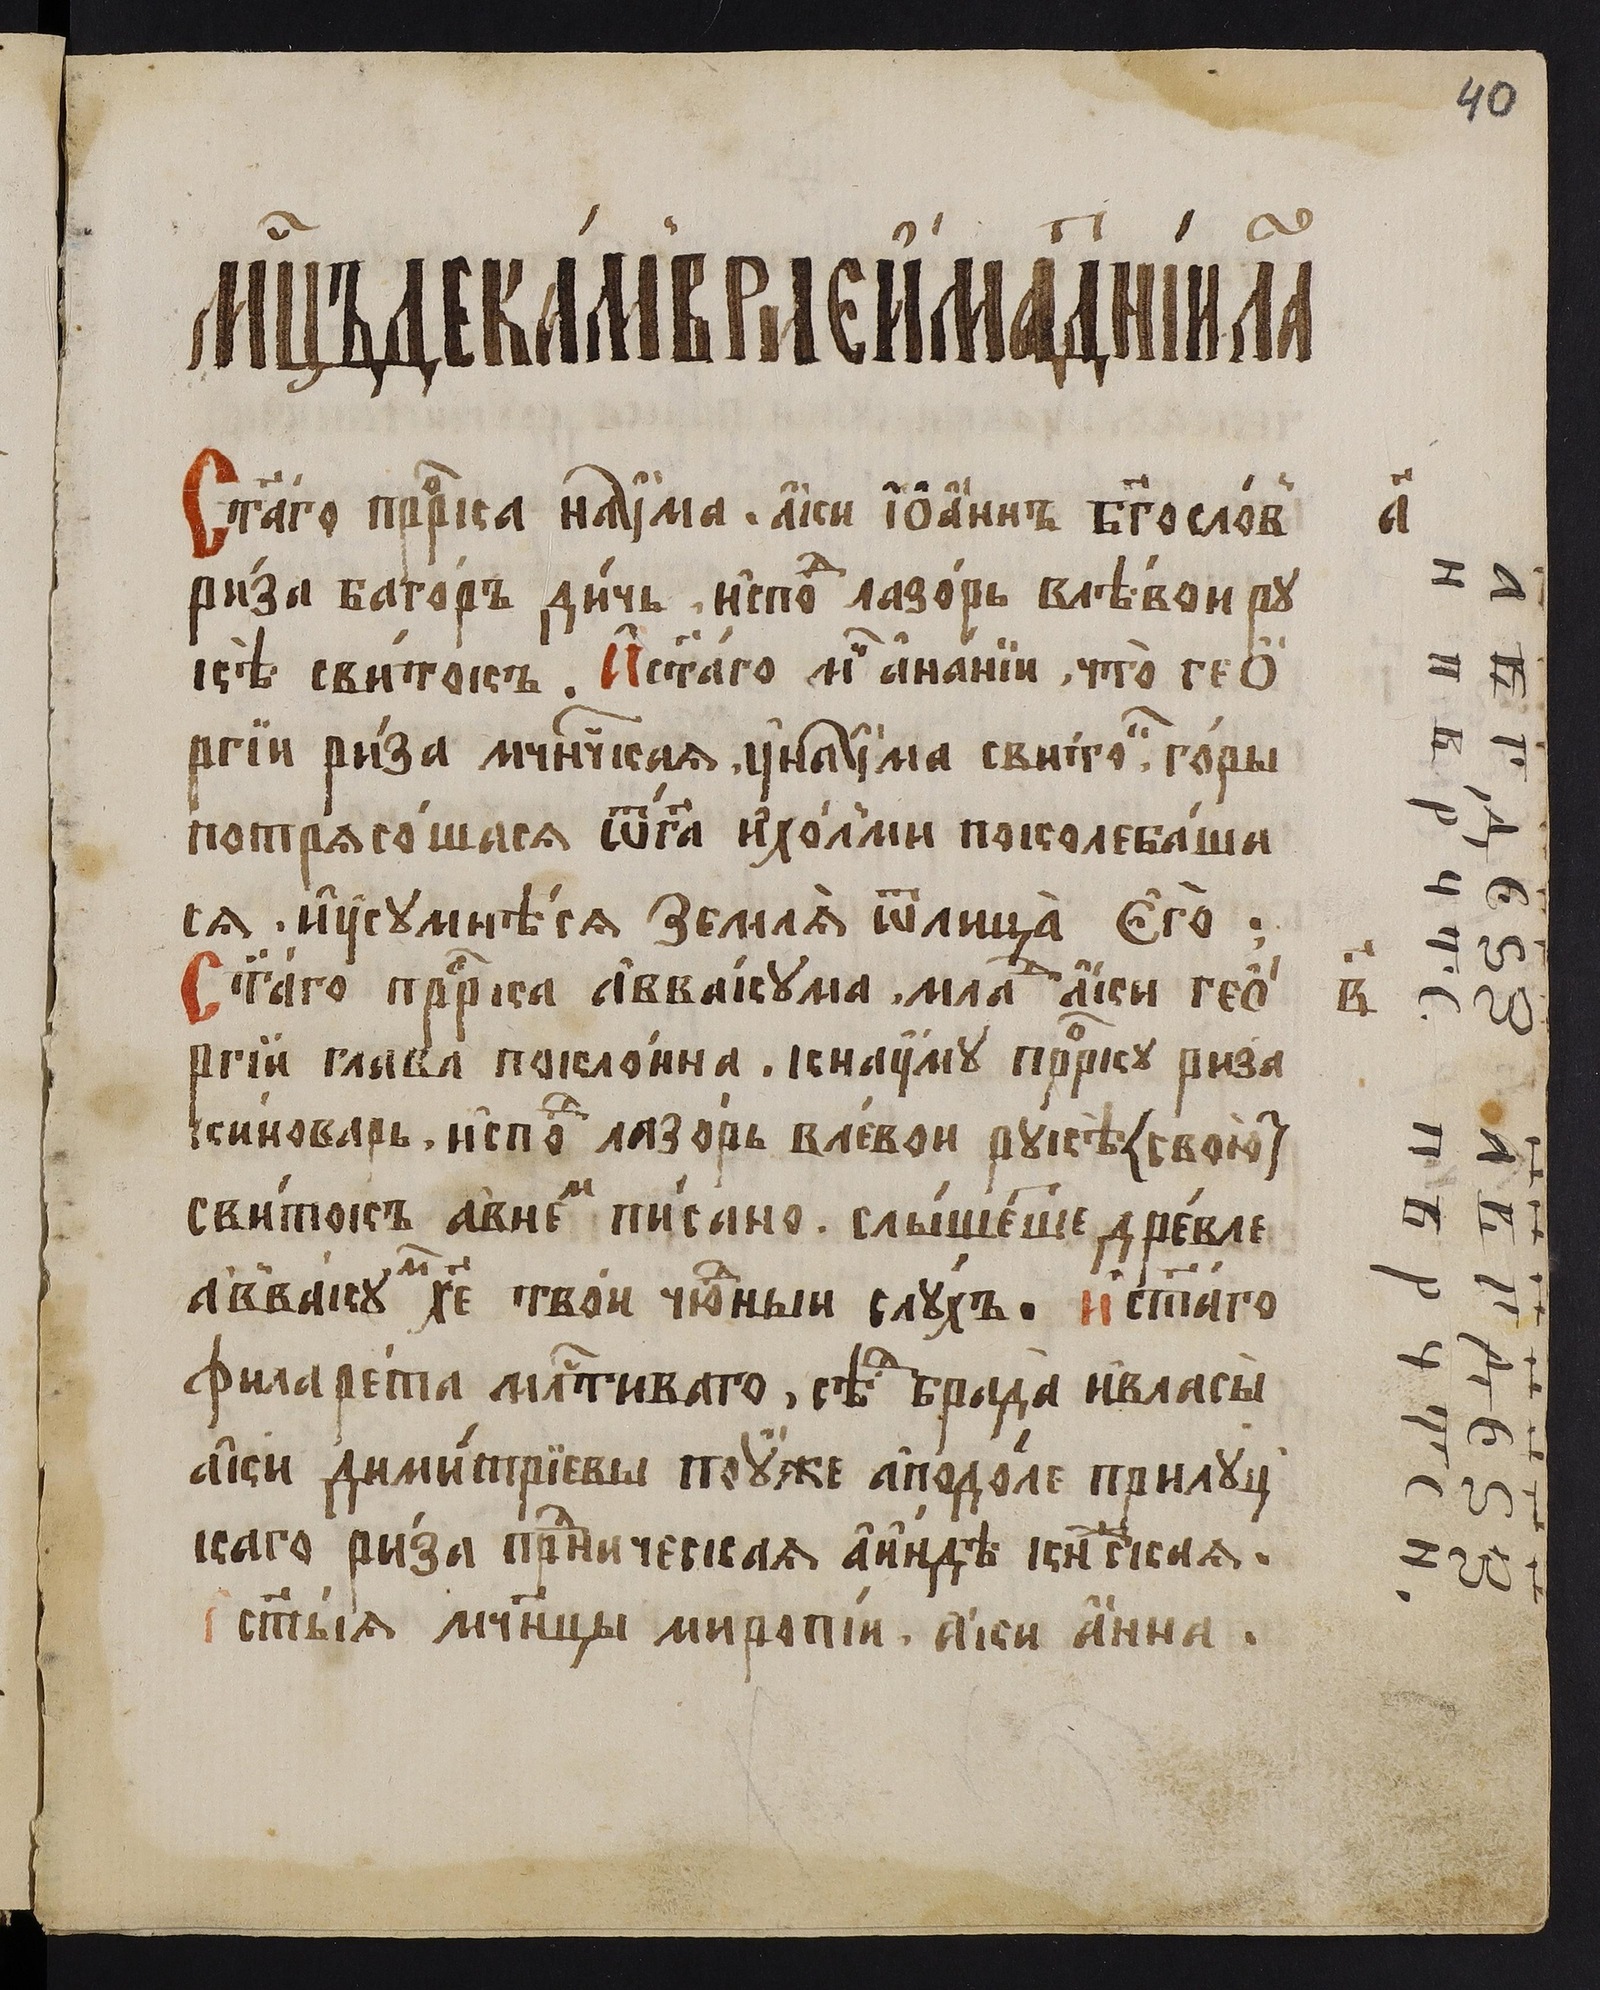 40
мц҃ъ дека́мврїй и҆мат̾ дні́и л҃а
Ст҃а́го прⷪ҇рка наꙋ́ма. а҆́ки і҆ѡа́ннъ бг҃осло́в
а҃
ри́за баго́ръ ди́чь, и҆споⷣ лазо́рь влѣ́вои рꙋ
кѣ̀ сви́токъ. И҆ ст҃а́го мⷱ҇ а҆на́нїи, что̀ гео҆́
ргїи ри́за мчн҃ческаѧ, ꙋ҆наꙋ́ма свиток̾, го́ры
потрѧсо́шасѧ ѿ бг҃а и҆хо́лми поколеба́ша
сѧ. и҆ꙋсꙋмнѣ́сѧ землѧ̀ ѿлица̀ є҆гѡ̀.
Ст҃а́го прⷪ҇рка а҆ввакꙋ́ма, млаⷣ а҆́ки гео҆́
в҃
ргїи глава покло́нна. кнаꙋ́мꙋ прⷪ҇ркꙋ риза
кино́варь, и҆споⷣ лазо́рь вле́вои рꙋкѣ̀ {своі́ю}
сви́токъ а҆вне́ⷨ пи́сано. слы́шенїе дре́вле
а҆ввакꙋ́ⷨ хе҃ тво́и чю́ⷣныи слꙋ́хъ. и҆ ст҃а́го
филаре́та млⷭ҇тиваго, сѣⷣ брада̀ и҆власы̀
а҆́ки дими́трїевы поꙋ́же а҆подо́ле прилꙋц
каго ри́за прⷣпническаѧ а҆и҆ндѣ̀ кнѧ҃жескаѧ.
ст҃ы́ѧ мчн҃цы миропі́и. а҆́ки а҆́нна.
и п в р ч ц с
а в г д е ѕ з
п в р ч ц с и
а в г д е ѕ з